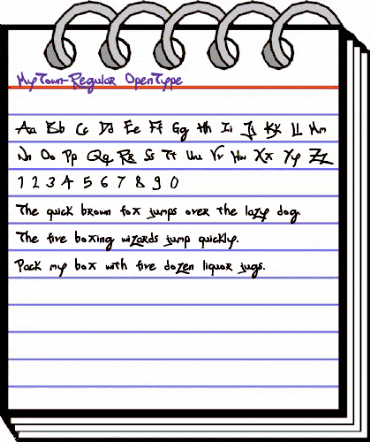 MyTown-Regular OpenType
Aa Bb Cc Dd Ee Ff Gg Hh Ii Jj Kk Ll Mm
Nn Oo Pp Qq Rr Ss Tt Uu Vv Ww Xx Yy Zz
1 2 3 4 5 6 7 8 9 0
The quick brown fox jumps over the lazy dog.
The five boxing wizards jump quickly.
Pack my box with five dozen liquor jugs.